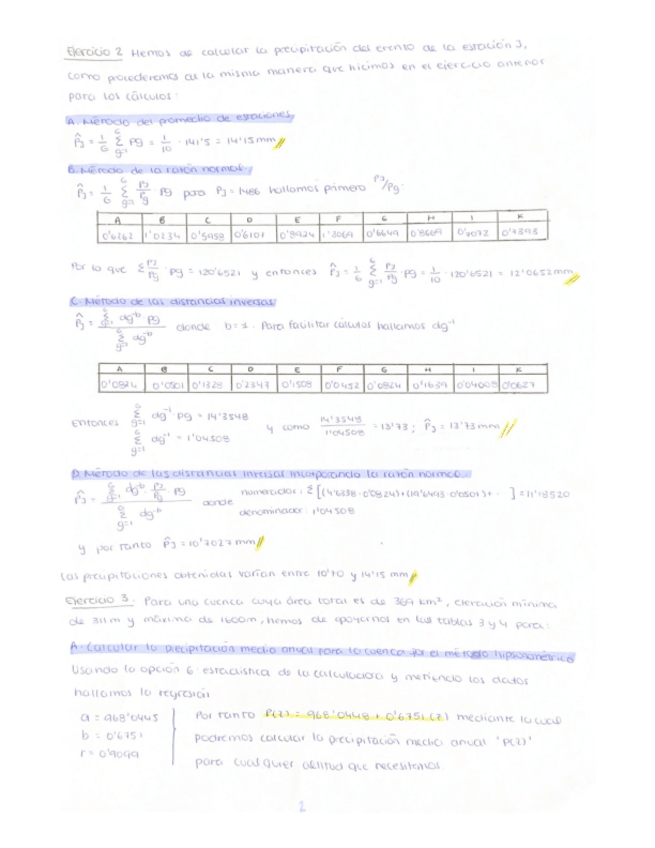 Ejercicio 2 Hemos de calcular la precipitación del evento de la estación J,
como procederemos de la misma manera que hicimos en el ejercicio anterior
para los cálculos:
A. Método del promedio de estaciones
P̂j = 1/6 Σ Pg = 1/10 · 141'5 = 14'15 mm //
B. Método de la razón normal.
P̂j = 1/G Σ Pj/Pg · Pg para Pj = 1486 hallamos primero Pj/Pg.
A B C D E F G H I K
0'6262 1'0234 0'5958 0'6107 0'8924 1'3069 0'6649 0'8669 0'7072 0'7393
Por lo que Σ Pj/Pg · Pg = 120'6521 y entonces P̂j = 1/G Σ Pj/Pg · Pg = 1/10 · 120'6521 = 12'0652 mm //
C. Método de las distancias inversas
P̂j = Σ dg⁻ᵇ Pg / Σ dg⁻ᵇ donde b=1. Para facilitar cálculos hallamos dg⁻¹
A B C D E F G H I K
0'0824 0'0501 0'1328 0'2343 0'1508 0'0452 0'0824 0'1639 0'04008 0'0627
Entonces Σ dg⁻¹ Pg = 14'3548 y como 14'3548 / 1'04508 = 13'73 ; P̂j = 13'73 mm //
Σ dg⁻¹ = 1'04508
D. Método de las distancias inversas incorporando la razón normal.
P̂j = Σ dg⁻ᵇ · Pj/Pg · Pg / Σ dg⁻ᵇ donde numerador: Σ [( · 0'0824)+( · 0'0501)+ · ] = 11'18520
denominador: 1'04508
y por tanto P̂j = 10'7027 mm //
Las precipitaciones obtenidas varían entre 10'70 y 14'15 mm //
Ejercicio 3. Para una cuenca cuya área total es de 369 km², elevación mínima
de 311 m y máxima de 1600m, hemos de apoyarnos en las tablas 3 y 4 para:
A. Calcular la precipitación media anual para la cuenca por el método hipsométrico
Usando la opción 6: estadística de la calculadora y metiendo los datos
hallamos la regresión
a = 968'0445
b = 0'6751
r = 0'9099
Por tanto P(z) = 968'0448 + 0'6751 (z) mediante la cual
podremos calcular la precipitación media anual "P(z)"
para cualquier altitud que necesitemos.
1